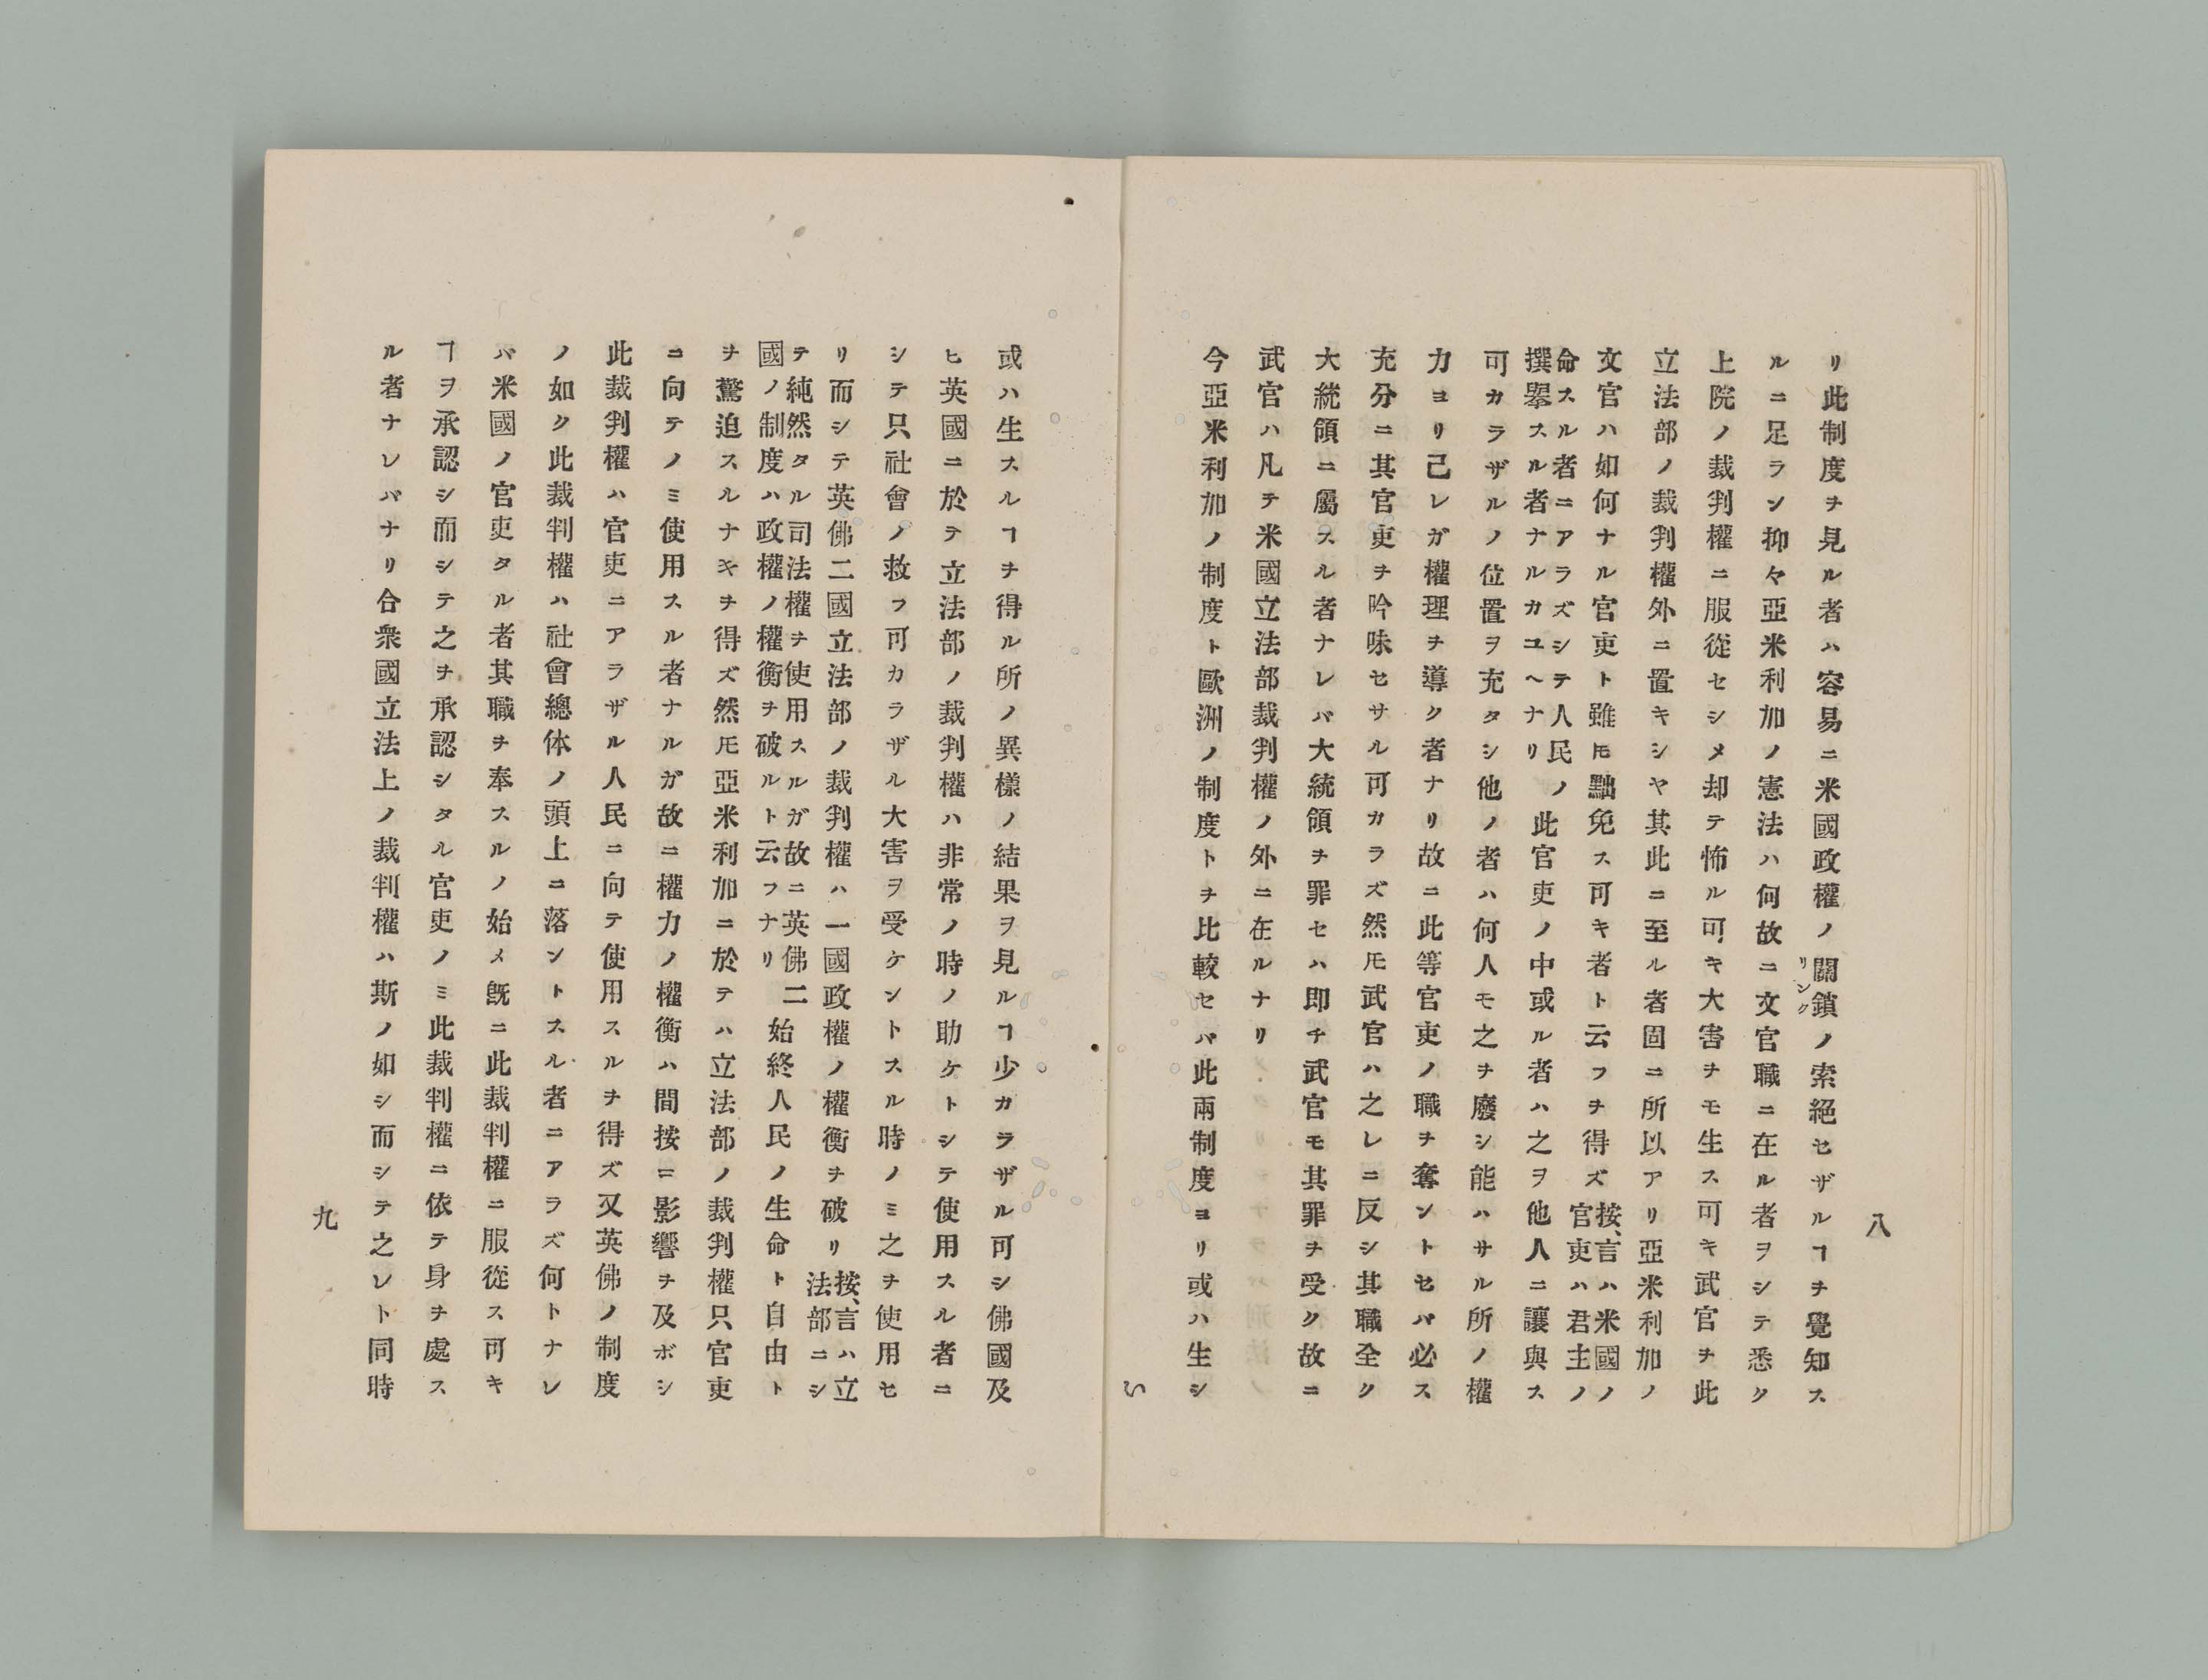 八
リ此制度ヲ見ル者ハ容易ニ米國政權ノ關鎖ノ索絕セザルヿヲ覺知ス
リンク
ルニ足ラン抑々亞米利加ノ憲法ハ何故ニ文官職ニ在ル者ヲシテ悉ク
上院ノ裁判權ニ服從セシメ却テ怖ル可キ大害ヲモ生ス可キ武官ヲ此
立法部ノ裁判權外ニ置キシヤ其此ニ至ル者固ニ所以アリ亞米利加ノ
文官ハ如何ナル官吏ト雖𪜈黜免ス可キ者ト云フヲ得ズ
按、言ハ米國ノ
官吏ハ君主ノ
命スル者ニアラズシテ人民ノ
撰擧スル者ナルカユヘナリ
此官吏ノ中或ル者ハ之ヲ他人ニ讓與ス
可カラザルノ位置ヲ充タシ他ノ者ハ何人モ之ヲ廢シ能ハサル所ノ權
力ヨリ己レガ權理ヲ導ク者ナリ故ニ此等官吏ノ職ヲ奪ントセバ必ス
充分ニ其官吏ヲ吟味セサル可カラズ然𪜈武官ハ之レニ反シ其職全ク
大統領ニ屬スル者ナレバ大統領ヲ罪セハ即チ武官モ其罪ヲ受ク故ニ
武官ハ凡テ米國立法部裁判權ノ外ニ在ルナリ
今亞米利加ノ制度ト歐洲ノ制度トヲ比較セバ此兩制度ヨリ或ハ生シ
或ハ生スルヿヲ得ル所ノ異樣ノ結果ヲ見ルヿ少カラザル可シ佛國及
ヒ英國ニ於テ立法部ノ裁判權ハ非常ノ時ノ助ケトシテ使用スル者ニ
シテ只社會ノ救フ可カラザル大害ヲ受ケントスル時ノミ之ヲ使用セ
リ而シテ英佛二國立法部ノ裁判權ハ一國政權ノ權衡ヲ破リ
按、言ハ立
法部ニシ
テ純然タル司法權ヲ使用スルガ故ニ英佛二
國ノ制度ハ政權ノ權衡ヲ破ルト云フナリ
始終人民ノ生命ト自由ト
ヲ驚迫スルナキヲ得ズ然𪜈亞米利加ニ於テハ立法部ノ裁判權只官吏
ニ向テノミ使用スル者ナルガ故ニ權力ノ權衡ハ間按ニ影響ヲ及ボシ
此裁判權ハ官吏ニアラザル人民ニ向テ使用スルヲ得ズ又英佛ノ制度
ノ如ク此裁判權ハ社會總体ノ頭上ニ落ントスル者ニアラズ何トナレ
バ米國ノ官吏タル者其職ヲ奉スルノ始メ旣ニ此裁判權ニ服從ス可キ
ヿヲ承認シ而シテ之ヲ承認シタル官吏ノミ此裁判權ニ依テ身ヲ處ス
ル者ナレバナリ合衆國立法上ノ裁判權ハ斯ノ如シ而シテ之レト同時
九